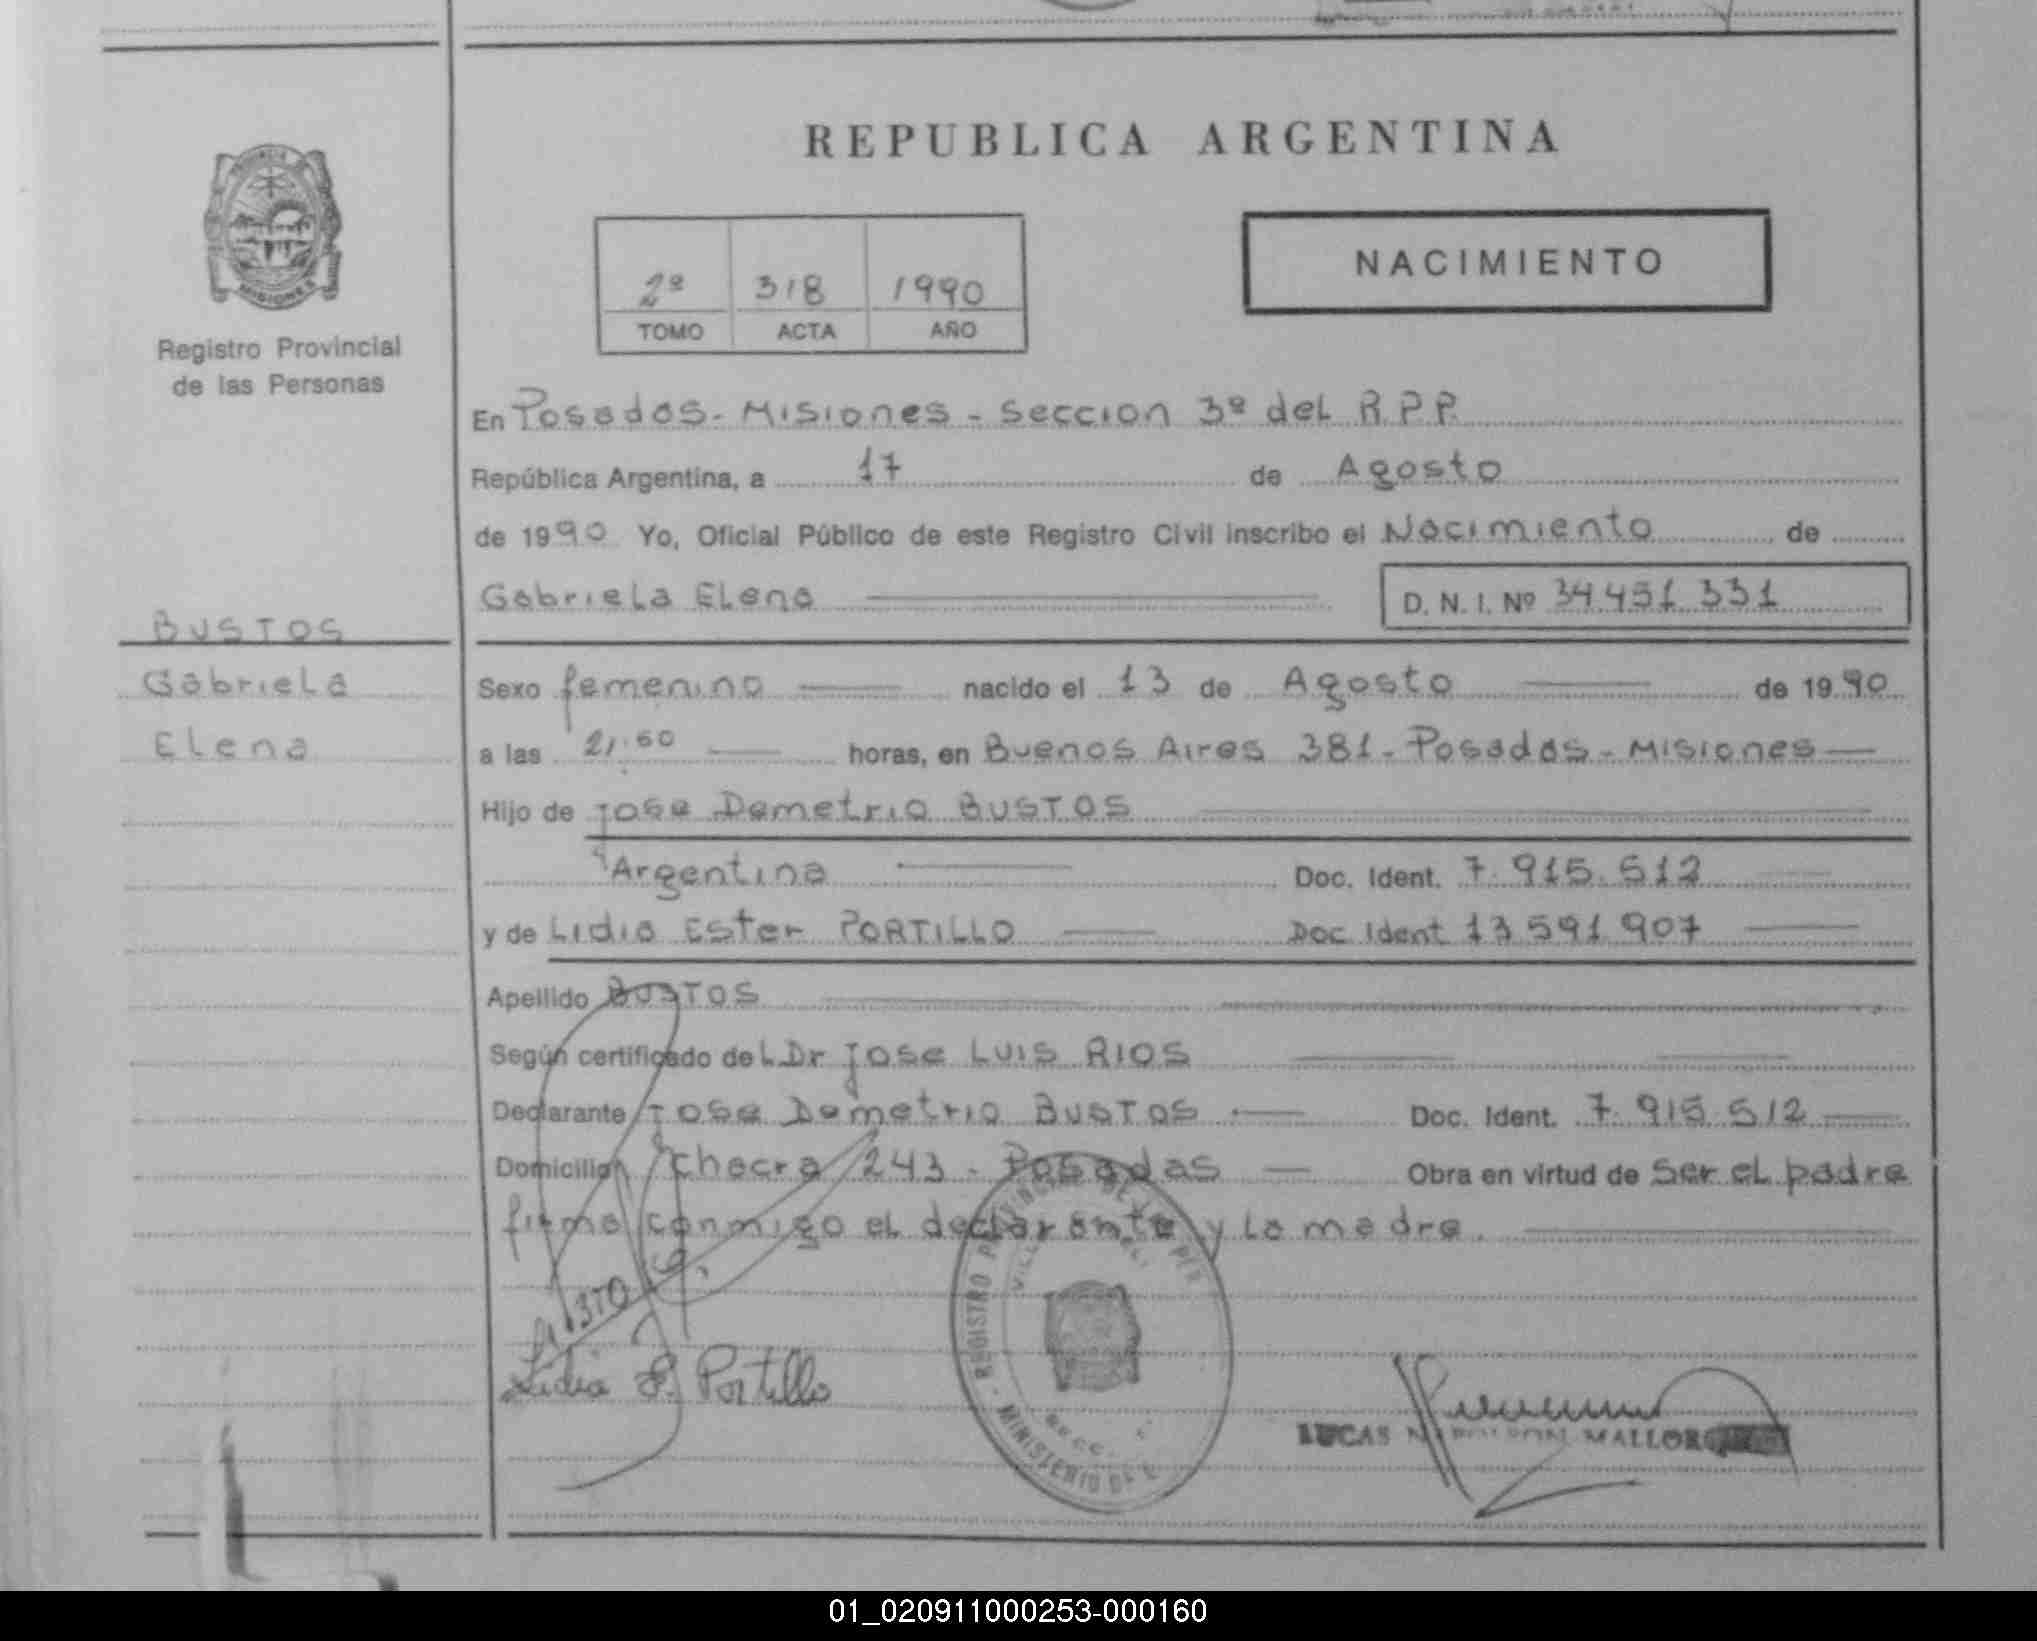 REPUBLICA ARGENTINA
MISIONES
Registro Provincial
de las Personas
2º 318 1990
TOMO ACTA AÑO
NACIMIENTO
En Posadas - Misiones - Seccion 3º del R.P.P.
República Argentina, a 17 de Agosto
de 1990 Yo, Oficial Público de este Registro Civil inscribo el Nacimiento de
Gabriela Elena D. N. I. Nº 34.451.331
BUSTOS
Gabriela
Elena
Sexo femenino nacido el 13 de Agosto de 1990
a las horas, en Buenos Aires 381 - Posadas - Misiones
Hijo de Jose Demetrio BUSTOS
Argentina Doc. Ident. 7.915.512
y de Lidia Ester PORTILLO Doc Ident 13.591.907
Apellido BUSTOS
Según certificado del Dr Jose Luis RIOS
Declarante Jose Demetrio BUSTOS Doc. Ident. 7.915.512
Domicilio Chacra 243 - Posadas Obra en virtud de ser el padre
firma conmigo el declarante y la madre.
Lidia E. Portillo
REGISTRO
MINISTERIO DE
LUCAS NAPOLEON
01_020911000253-000160